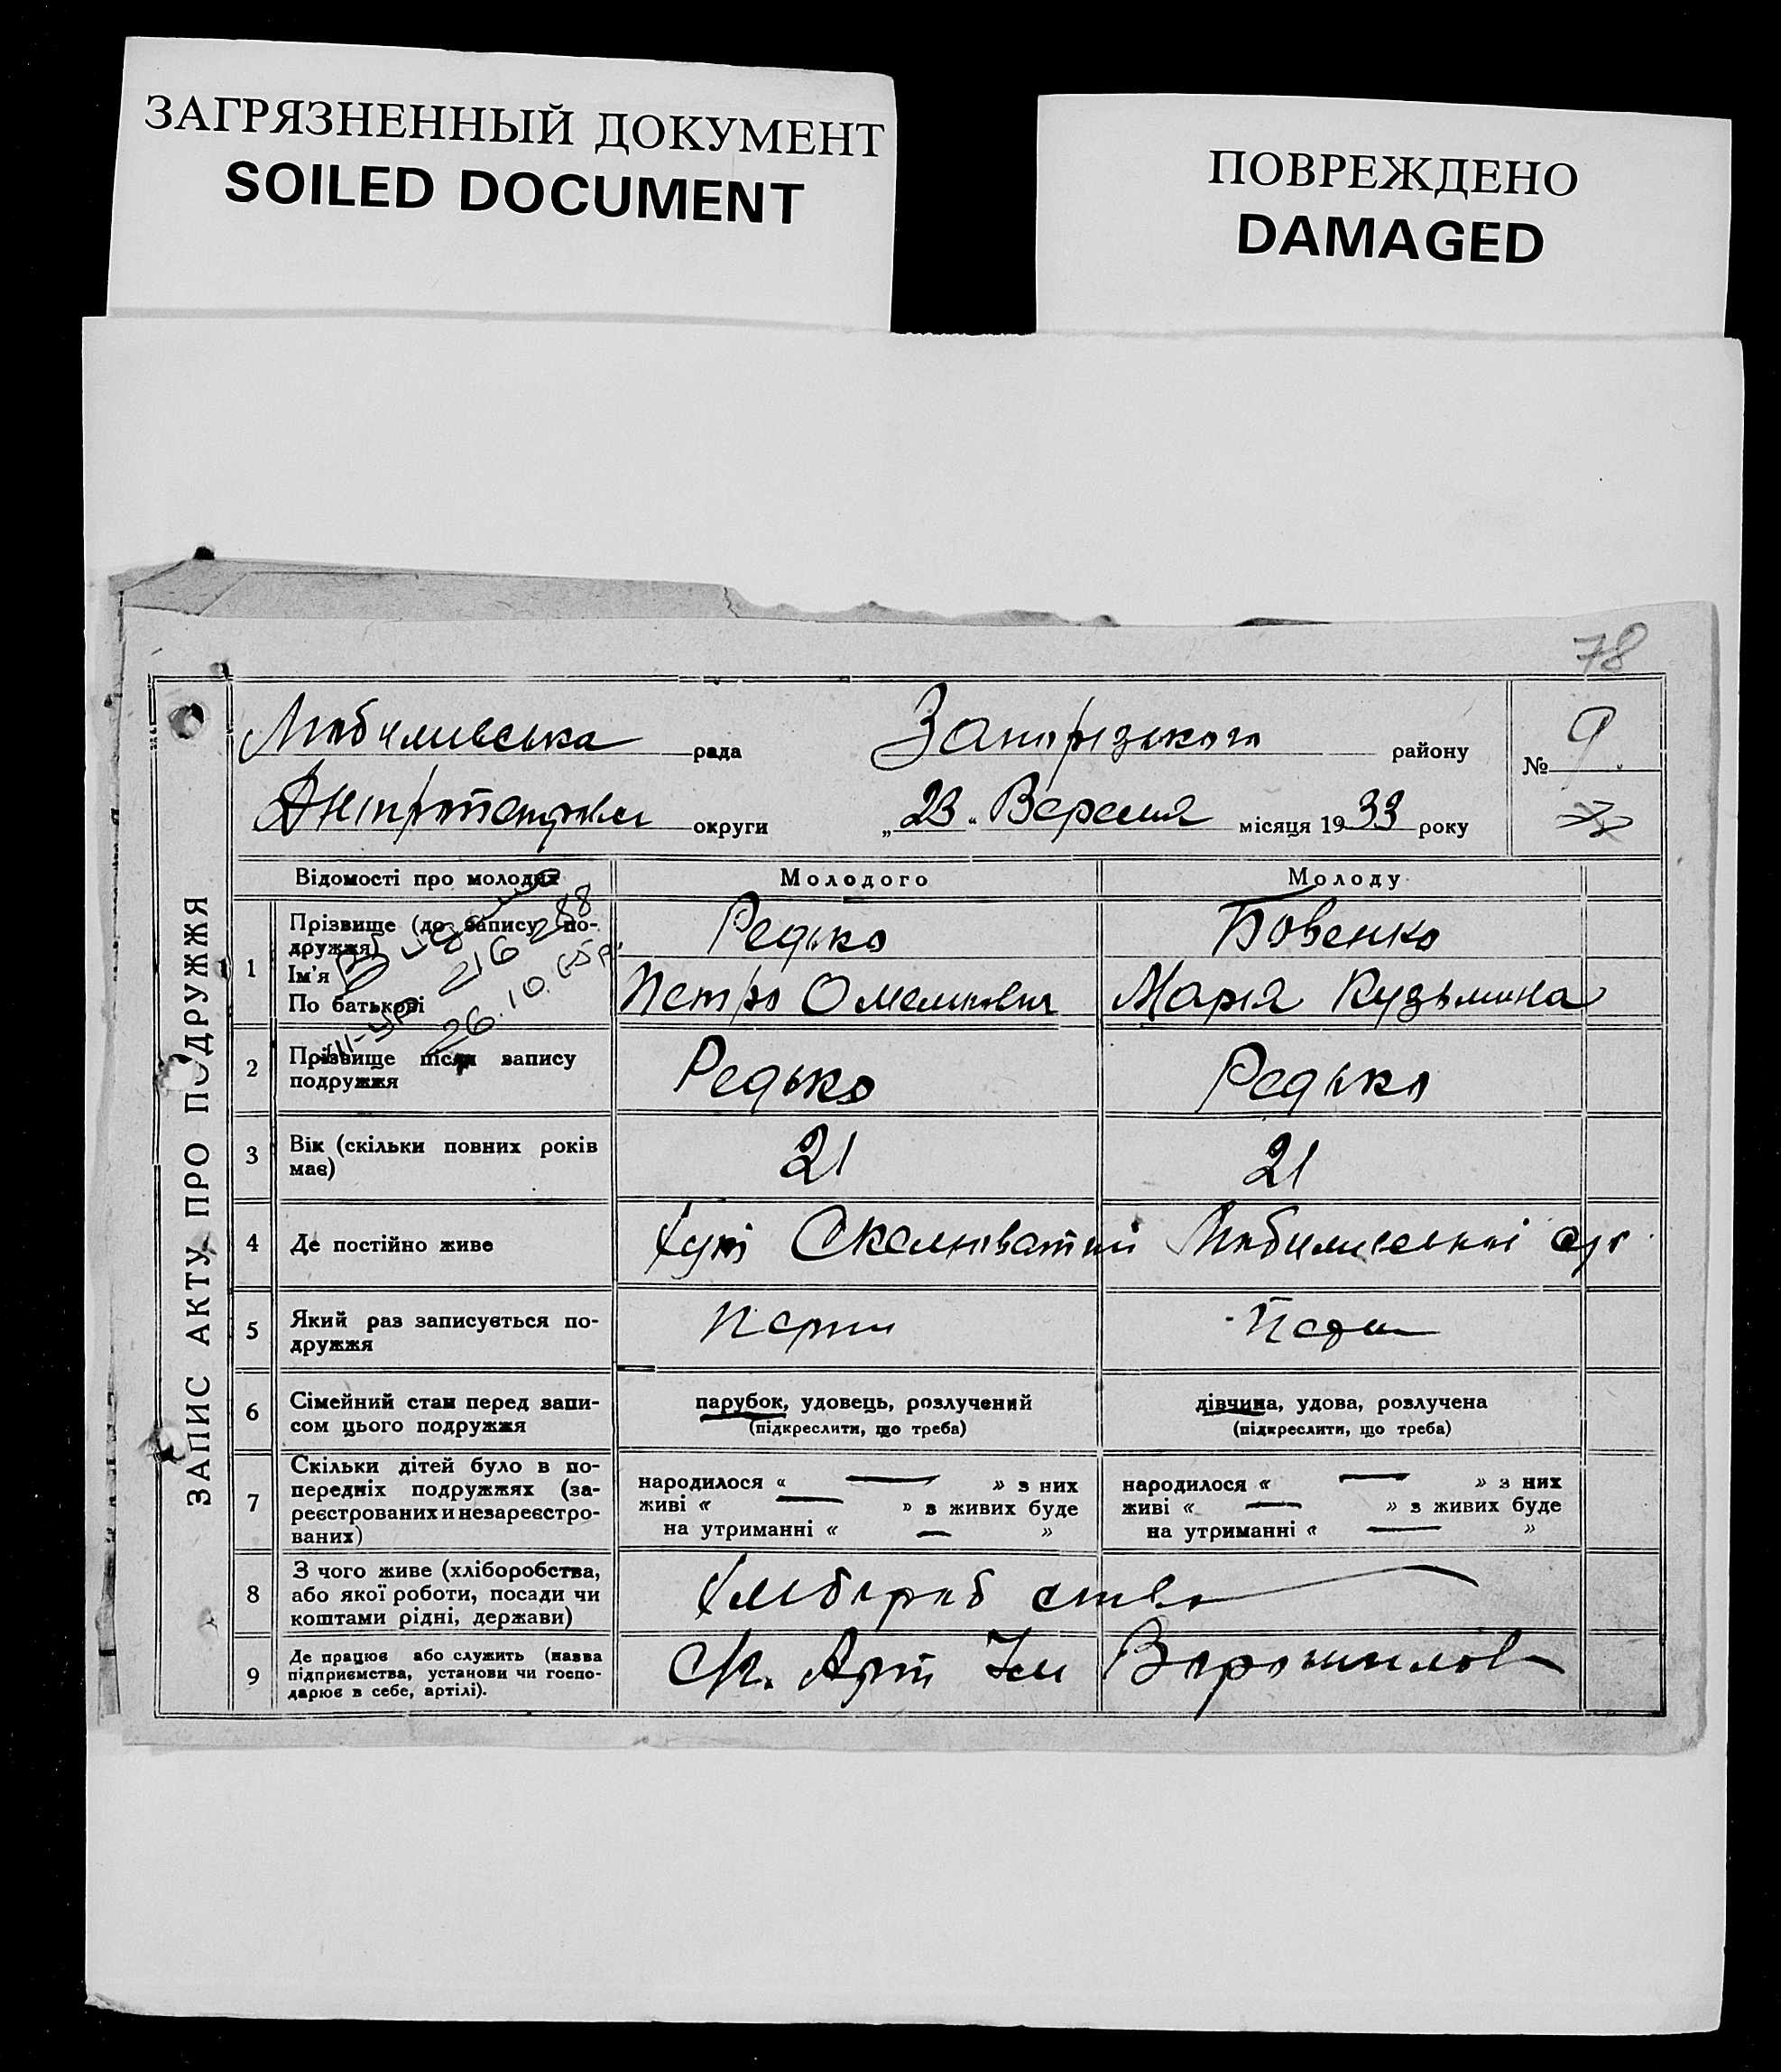 ЗАГРЯЗНЕННЫЙ ДОКУМЕНТ
SOILED DOCUMENT
ПОВРЕЖДЕНО
DAMAGED
78
ЗАПИС АКТУ ПРО ПОДРУЖЖЯ
рада Запорізького району № 9
округи „23“ Вересня місяця 1933 року
Відомості про молодих Молодого Молоду
1 Прізвище (до запису подружжя) Редько Бовенко
Ім'я
По батькові Петро Омелькович Марія Кузьмина
216288
26.10.65р.
2 Прізвище після запису Редько Редько
подружжя
3 Вік (скільки повних років 21 21
має)
4 Де постійно живе Хут Скелюватий
5 Який раз записується по-
дружжя Перши
6 Сімейний стан перед запи- парубок, удовець, розлучений дівчина, удова, розлучена
сом цього подружжя (підкреслити, що треба) (підкреслити, що треба)
7 Скільки дітей було в по-
передніх подружжях (за- народилося « — » з них народилося « — » з них
реєстрованих и незареєстро- живі « — » з живих буде живі « — » з живих буде
ваних) на утриманні « — » на утриманні « — »
8 З чого живе (хліборобства,
або якої роботи, посади чи Хліборобство
коштами рідні, держави)
9 Де працює або служить (назва
підприємства, установи чи госпо- Арт Ім Ворошилова
дарює в себе, артілі).